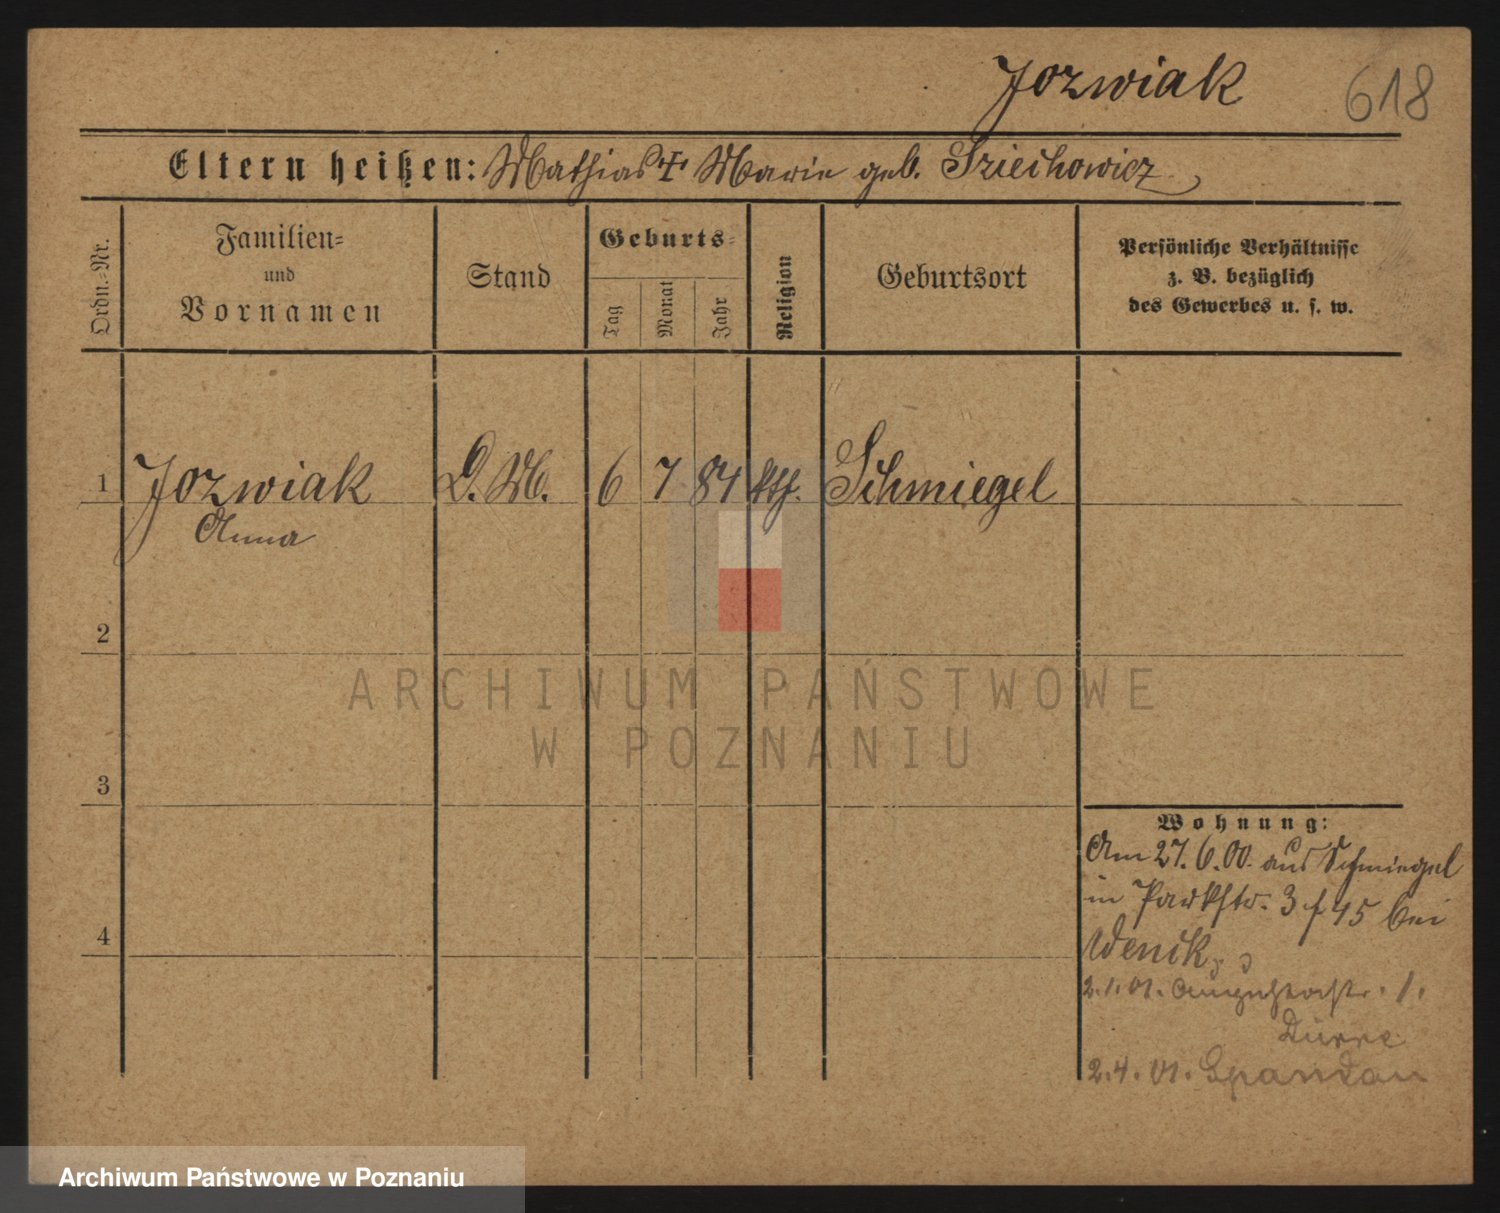 Jozwiak 618
Eltern heißen: Mathias + Marie geb. Sziechowicz
Ordn.-Nr.
Familien-
und
Vornamen
Stand
Geburts-
Tag
Monat
Jahr
Religion
Geburtsort
Persönliche Verhältnisse
z. B. bezüglich
des Gewerbes u. s. w.
1 Jozwiak D. M. 6 7 84 kth. Schmiegel
Anna
2
3
4
Wohnung:
Am 27.6.00. aus Schmiegel
in Parkstr. 3 f 45 bei
Wenik
2.1.01. Augustastr. 1.
Dürre
2.4.01. Spandau
ARCHIWUM PAŃSTWOWE
W POZNANIU
Archiwum Państwowe w Poznaniu